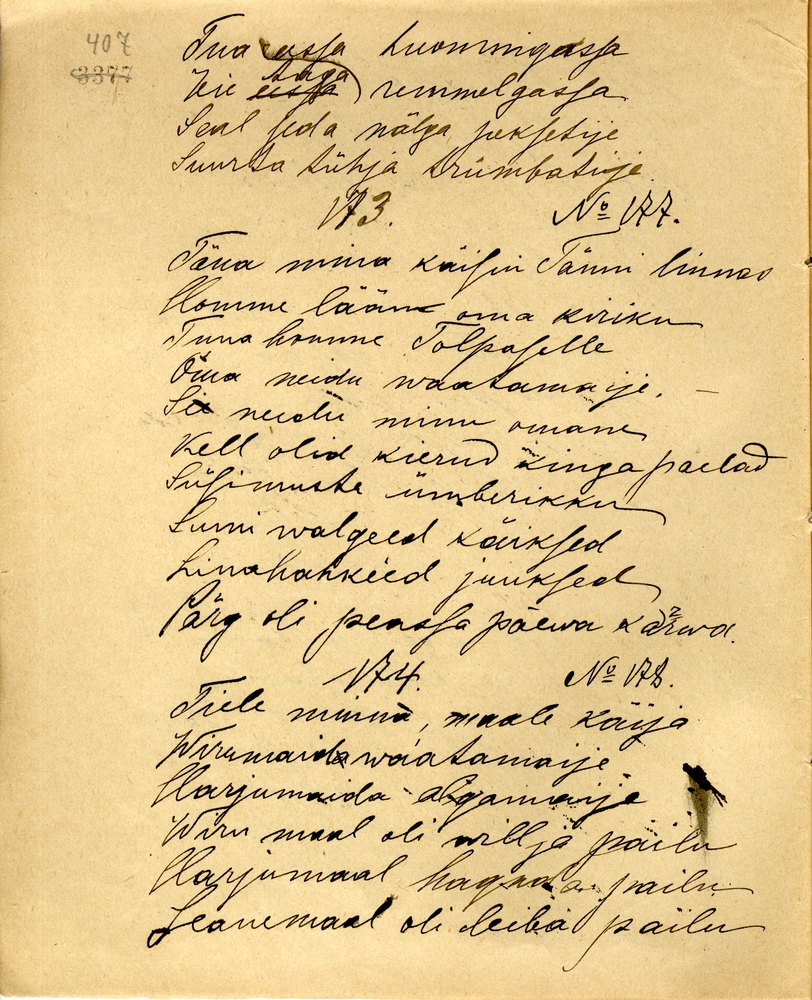 407
3377
Tua assa huomingassa
Vie taga remmelgassa
Seal seda nälga joksetije
Suurta tühja trümbatije
173. No 177.
Täna mina käisin Tänni linnas
Homme lään oma kiriku
Tuna homme Tolpaselle
Oma neidu waatamaije. –
Se neidu minu omane
Kell olid kierud kinga paelad
Süsimusta ümberikku
Lumi walged käiksed
Linahakkeed juuksed
Pärg oli peassa päewa kärwa.
174. No 178.
Tiele minna, maale käija
Wirumaida waatamaije
Harjumaida algamaije
Wiru maal oli wilja pailu
Harjumaal haganda pailu
Leanemaal oli leiba pailu